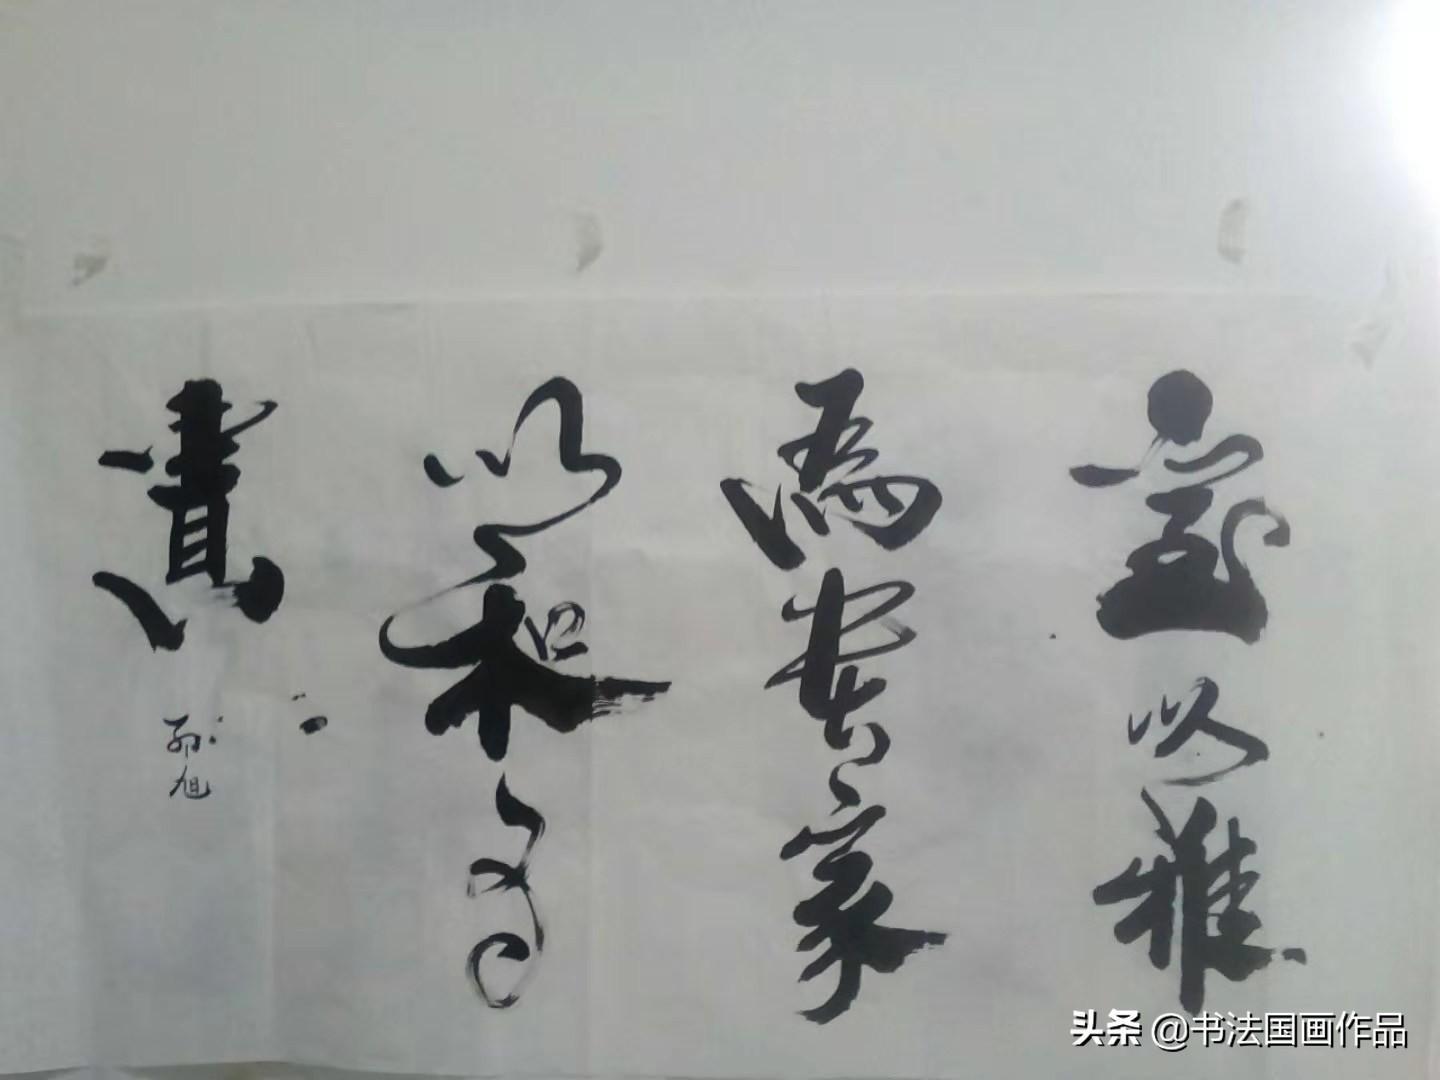 室以雅
為貴家
以和为
貴
孙旭
头条 @书法国画作品